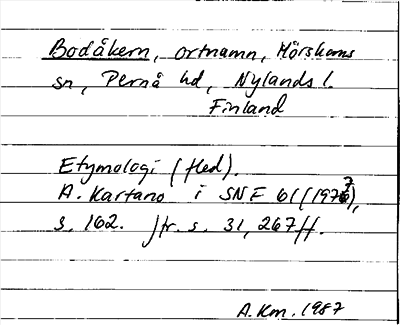 Bodåkern, ortnamn, Mörskoms
sn, Pernå hd, Nylands l.
Finland
Etymologi (fled).
A. Kartano i SNF 61 (1977),
s. 162. Jfr. s. 31, 267 ff.
A.Km. 1987